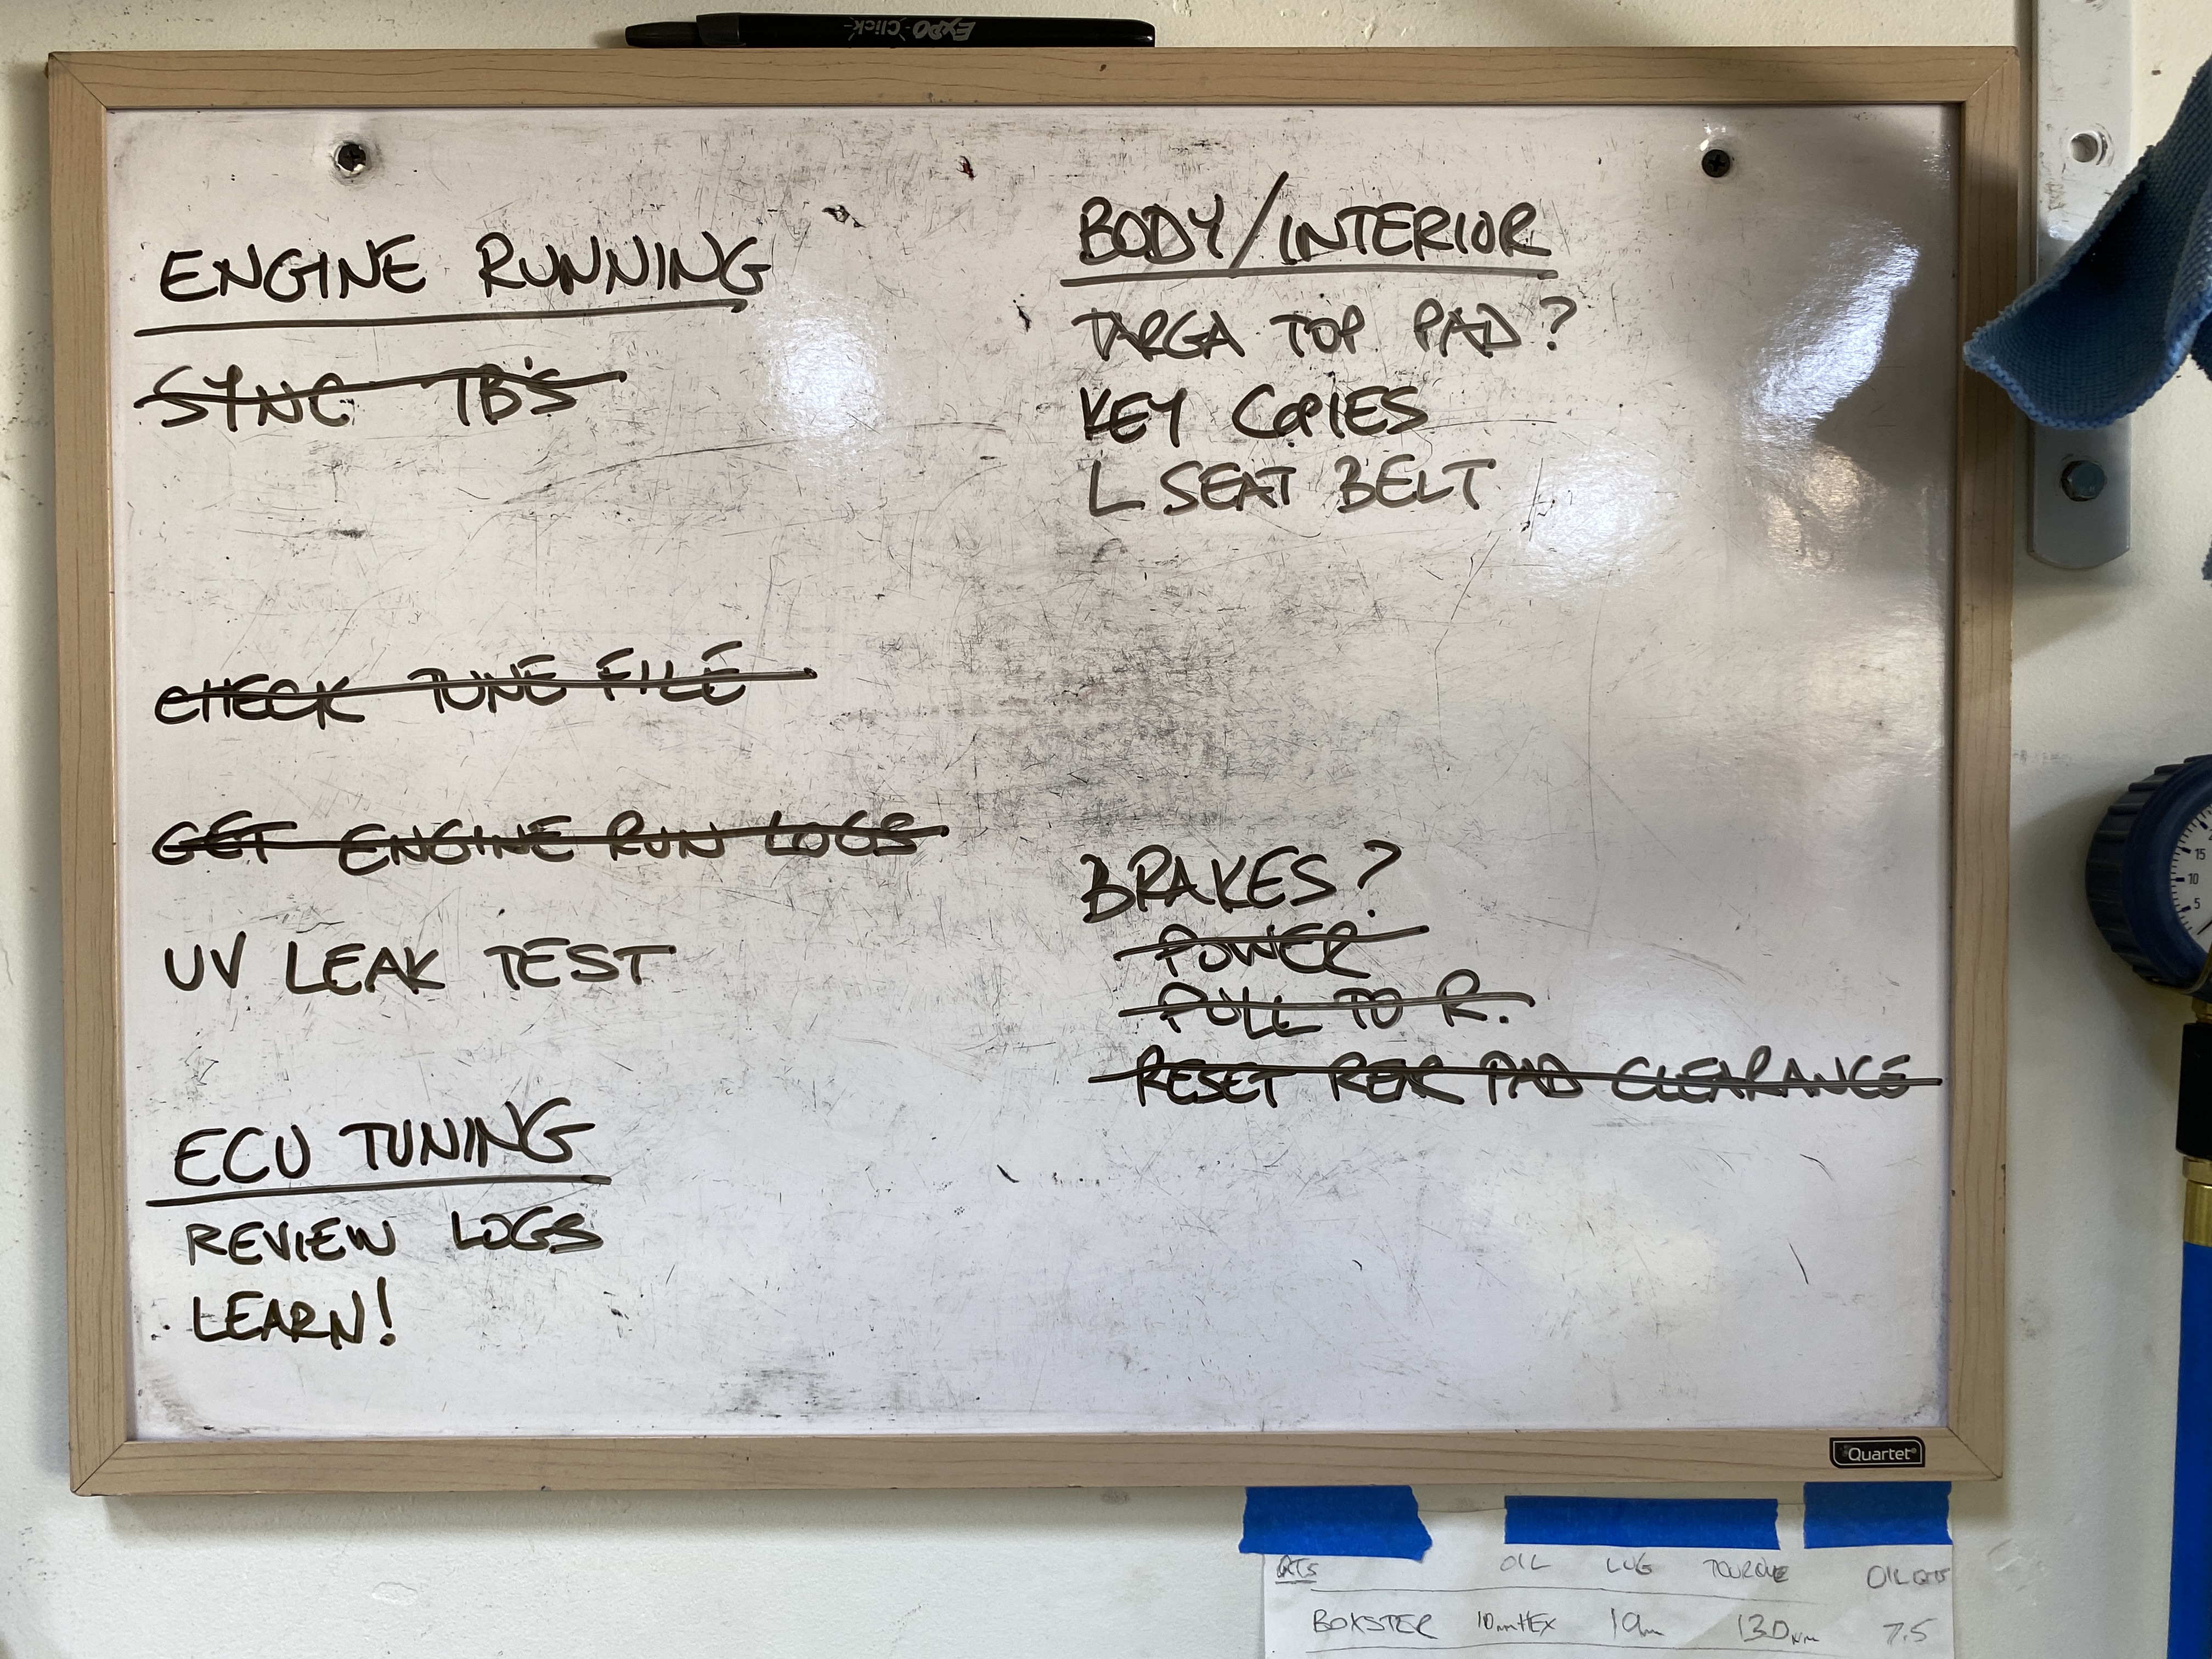 EXPO Click
ENGINE RUNNING
SYNC TB'S
CHECK TUNE FILE
GET ENGINE RUN LOGS
UV LEAK TEST
ECU TUNING
REVIEW LOGS
LEARN!
BODY/INTERIOR
TARGA TOP PAD?
KEY COPIES
L SEAT BELT
BRAKES?
POWER
PULL TO R.
RESET REAR PAD CLEARANCE
Quartet
15
10
5
OIL LUG TOURQUE OIL QTS
BOXSTER 10mm HEX 19mm 130Nm 7.5